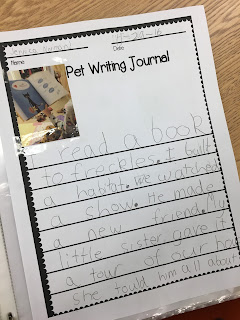 11-29-16
Name
Date
Pet Writing Journal
I read a book
to freckles. I built
a habitat. We watched
a show. He made
a new friend. My
little sister gave it
a tour of our
she tould him all about